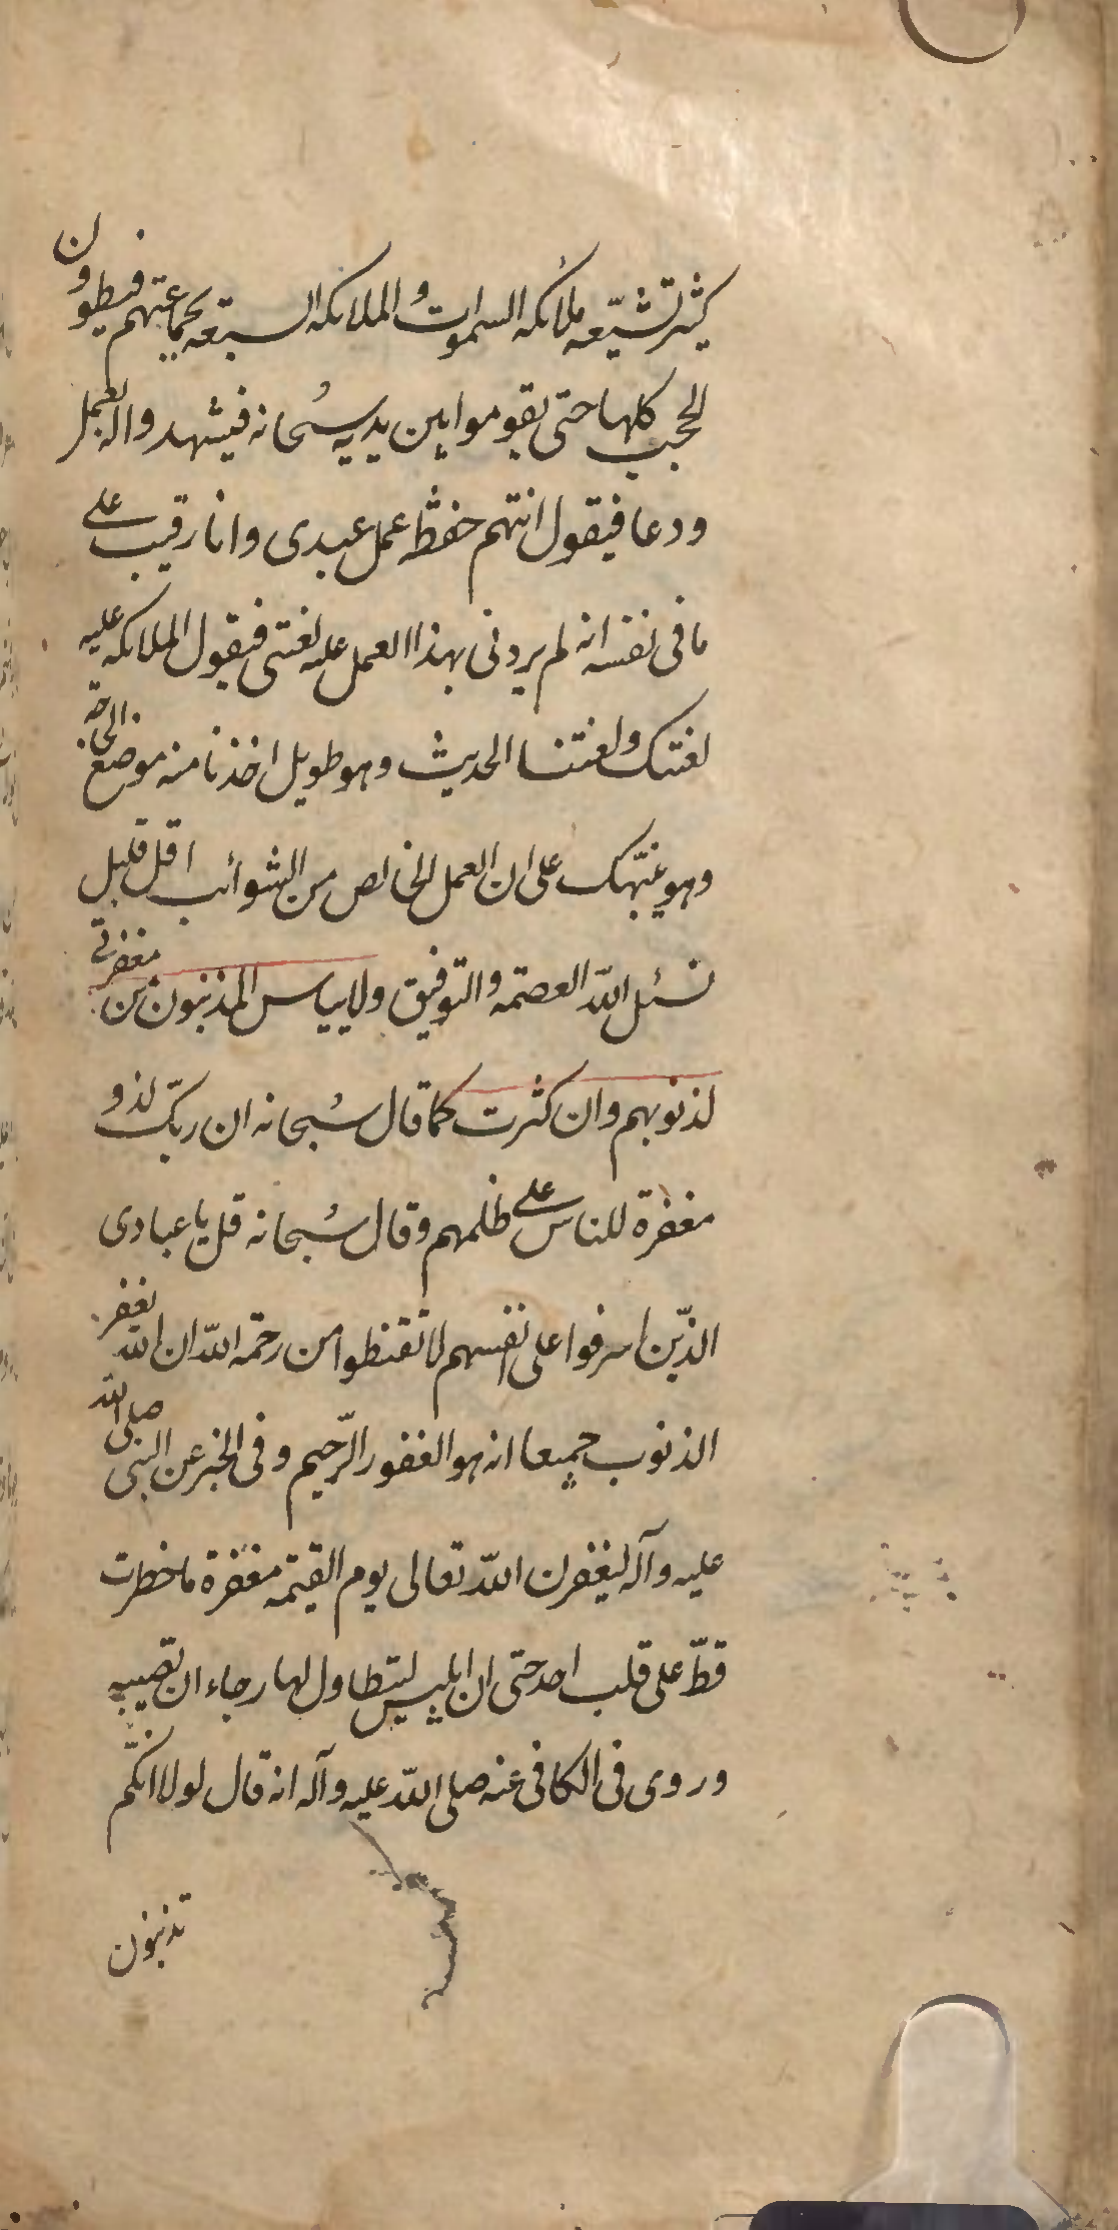 كثير تشيّعه ملائكه السموات والملائكه السبعه بجماعتهم فيطوون
الحجب كلها حتى يقوموا بين يديه سبحانه فيشهدوا له بعمل
ودعا فيقول انتم حفظه عمل عبدى وانا رقيب على
ما فى نفسه انه لم يردنى بهذا العمل عليه لعنتى فيقول الملائكه عليه
لعنتك ولعنتنا الحديث وهو طويل اخذنا منه موضع الحاجه
وهو ينبّهك على ان العمل الخالص من الشوائب اقل قليل
نسئل اللّه العصمه والتوفيق ولا ييأس المذنبون من مغفرتى
لذنوبهم وان كثرت كما قال سُبحانه ان ربّك لذو
مغفرة للناس على ظلمهم وقال سُبحانه قل يا عبادى
الذّين اسرفوا على انفسهم لا تقنطوا من رحمه اللّه ان اللّه يغفر
الذنوب جميعا انه هو الغفور الرّحيم وفى الخبر عن النبى صلى اللّه
عليه وآله ليغفرن اللّه تعالى يوم القيمه مغفرة ما خطرت
قطّ على قلب احد حتى ان ابليس ليتطاول لها رجاء ان تصيبه
وروى فى الكافى عنه صلى اللّه عليه وآله انه قال لولا انكم
تذنبون